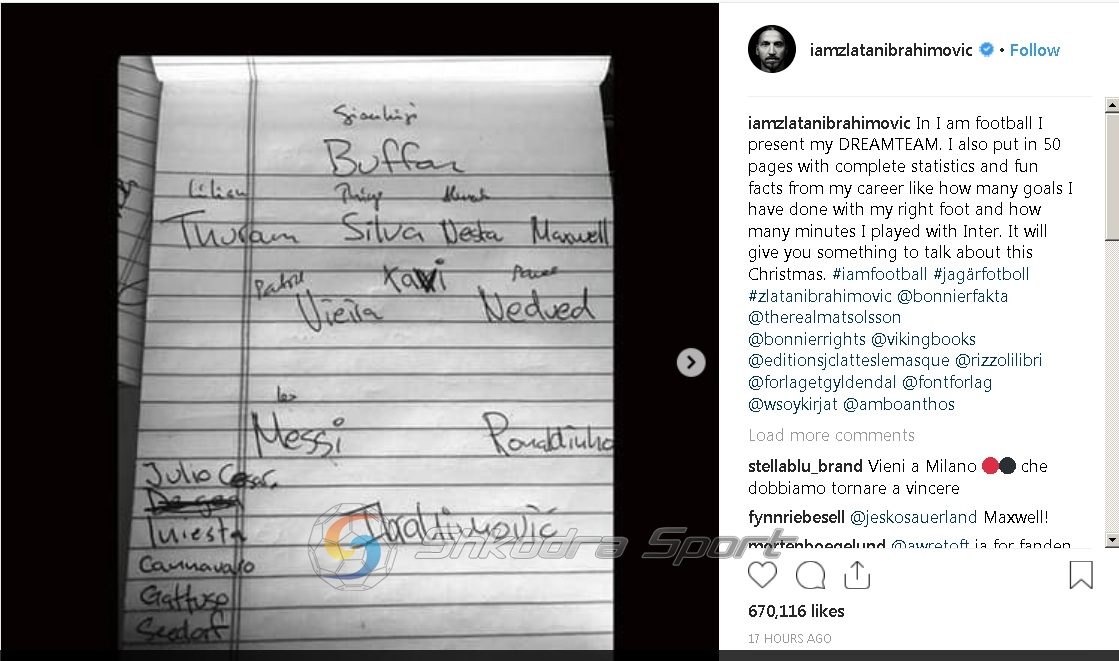 Gianluigi
Buffon
Lilian Thiago
Thuram Silva Nesta Maxwell
Patrick Xavi Pavel
Vieira Nedved
Leo
Messi Ronaldinho
Julio Cesar
Iniesta
Ibrahimović
Cannavaro
Gattuso
Seedorf
Shkodra Sport
iamzlatanibrahimovic • Follow
iamzlatanibrahimovic In I am football I
present my DREAMTEAM. I also put in 50
pages with complete statistics and fun
facts from my career like how many goals I
have done with my right foot and how
many minutes I played with Inter. It will
give you something to talk about this
Christmas. #iamfootball #jagärfotboll
#zlatanibrahimovic @bonnierfakta
@therealmatsolsson
@bonnierrights @vikingbooks
@editionsjclatteslemasque @rizzolilibri
@forlagetgyldendal @fontforlag
@wsoykirjat @amboanthos
Load more comments
stellablu_brand Vieni a Milano 🔴⚫ che
dobbiamo tornare a vincere
fynnriebesell @jeskosauerland Maxwell!
mortenboegelund @awretoft ja for fanden
670,116 likes
17 HOURS AGO